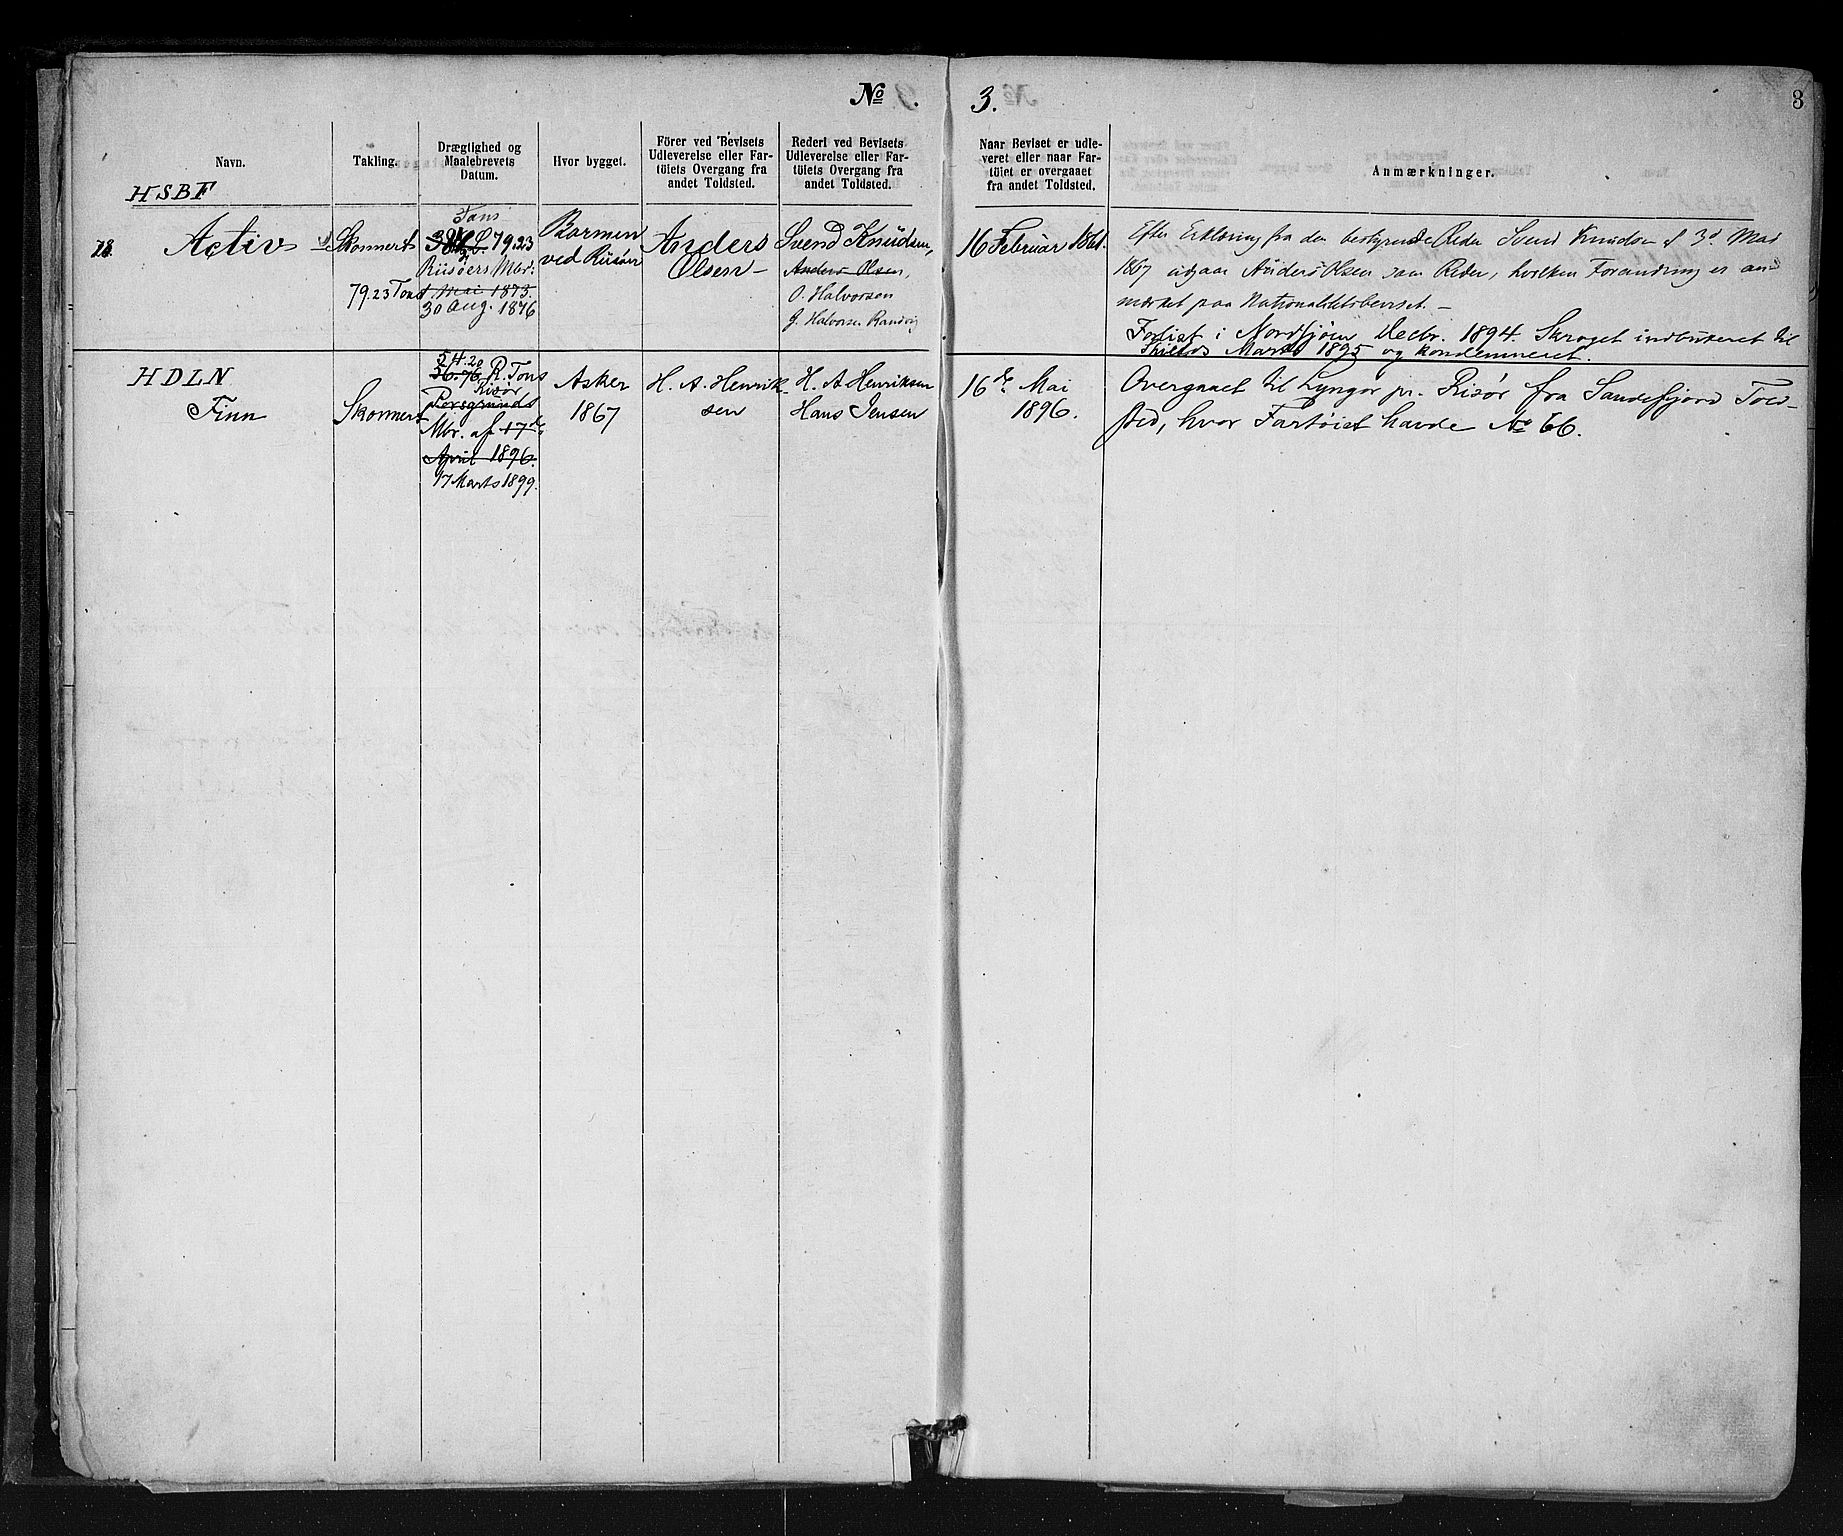 № 3.
3
Navn.
Takling.
Drægtighed og
Maalebrevets
Datum.
Hvor bygget.
Förer ved Bevisets
Udleverelse eller Far-
töiets Overgang fra
andet Toldsted.
Rederi ved Bevisets
Udleverelse eller Far-
töiets Overgang fra
andet Toldsted.
Naar Beviset er udle-
veret eller naar Far-
töiet er overgaaet
fra andet Toldsted.
Anmærkninger.
HSBF
78.
Activ
Skonnert
79.23 Tons
Tons
79.23
Riisöers Mbr:
1 Mai 1873.
30 Aug. 1876
Barmen
ved Riisöer
Anders
Olsen
Svend Knudsen,
Anders Olsen,
O. Halvorsen
J. Halvorsen Randvig
16 Februar 1861.
Efter Erklæring fra den bestyrende Reder Svend Knudsen af 3d Mai
1867 udgaar Anders Olsen som Reder, hvilken Forandring er an-
mærket paa Nationalitetsbeviset. —
Forlist i Nordsjøen Decbr. 1894. Skroget indbuxeret til
Shields Marts 1895 og kondemneret.
HDLN
Finn
Skonnert
54.20
56.76 R. Tons
Risør
Porsgrunds
Mbr. af 17de
April 1896.
17 Marts 1899.
Asker
1867
H. A. Henrik-
sen
H. A. Henriksen
Hans Jensen
16de Mai
1896.
Overgaaet til Lyngør pr. Risør fra Sandefjord Told-
sted, hvor Fartøiet havde № 66.